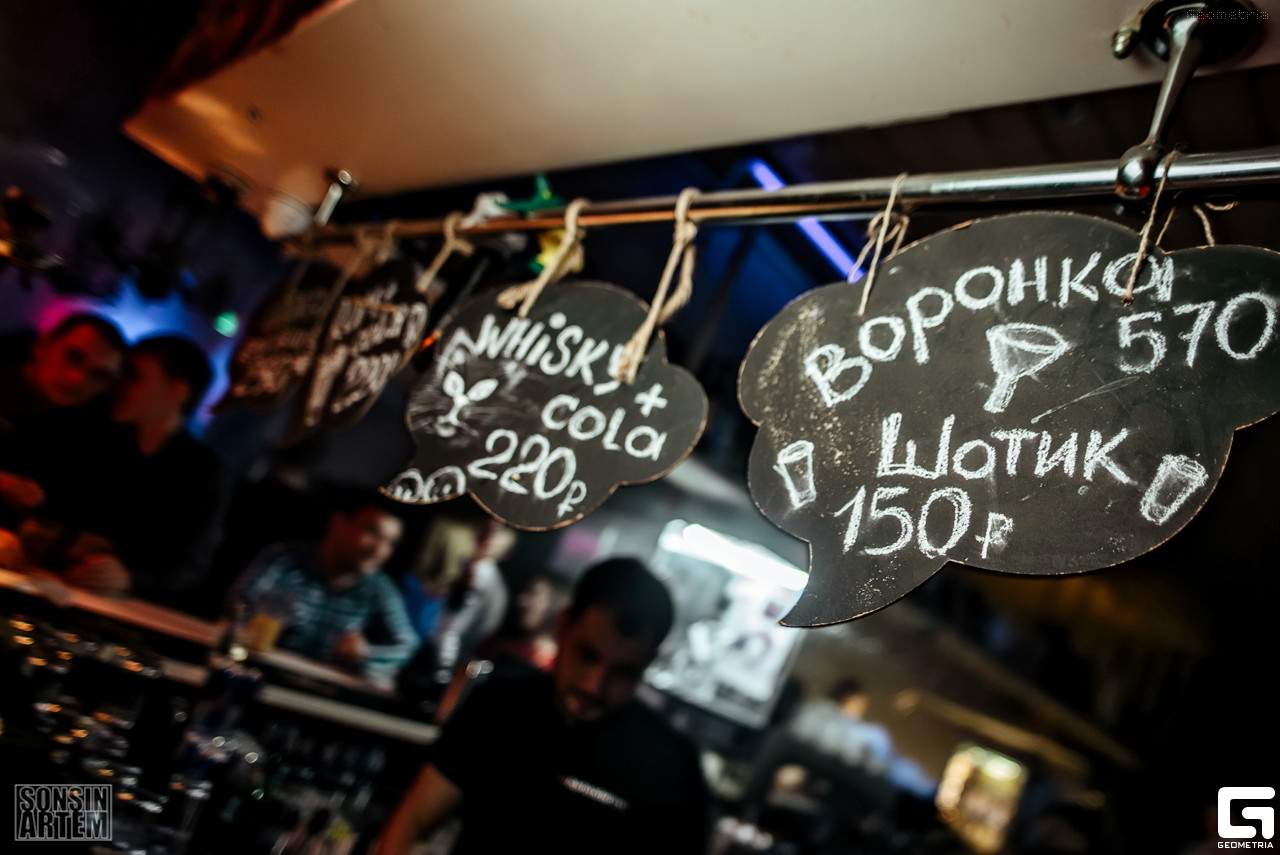 Geometria
Воронка
570
Шотик
150р
WHiSKY+
COLa
220р
SONSIN
ARTEM
GEOMETRIA